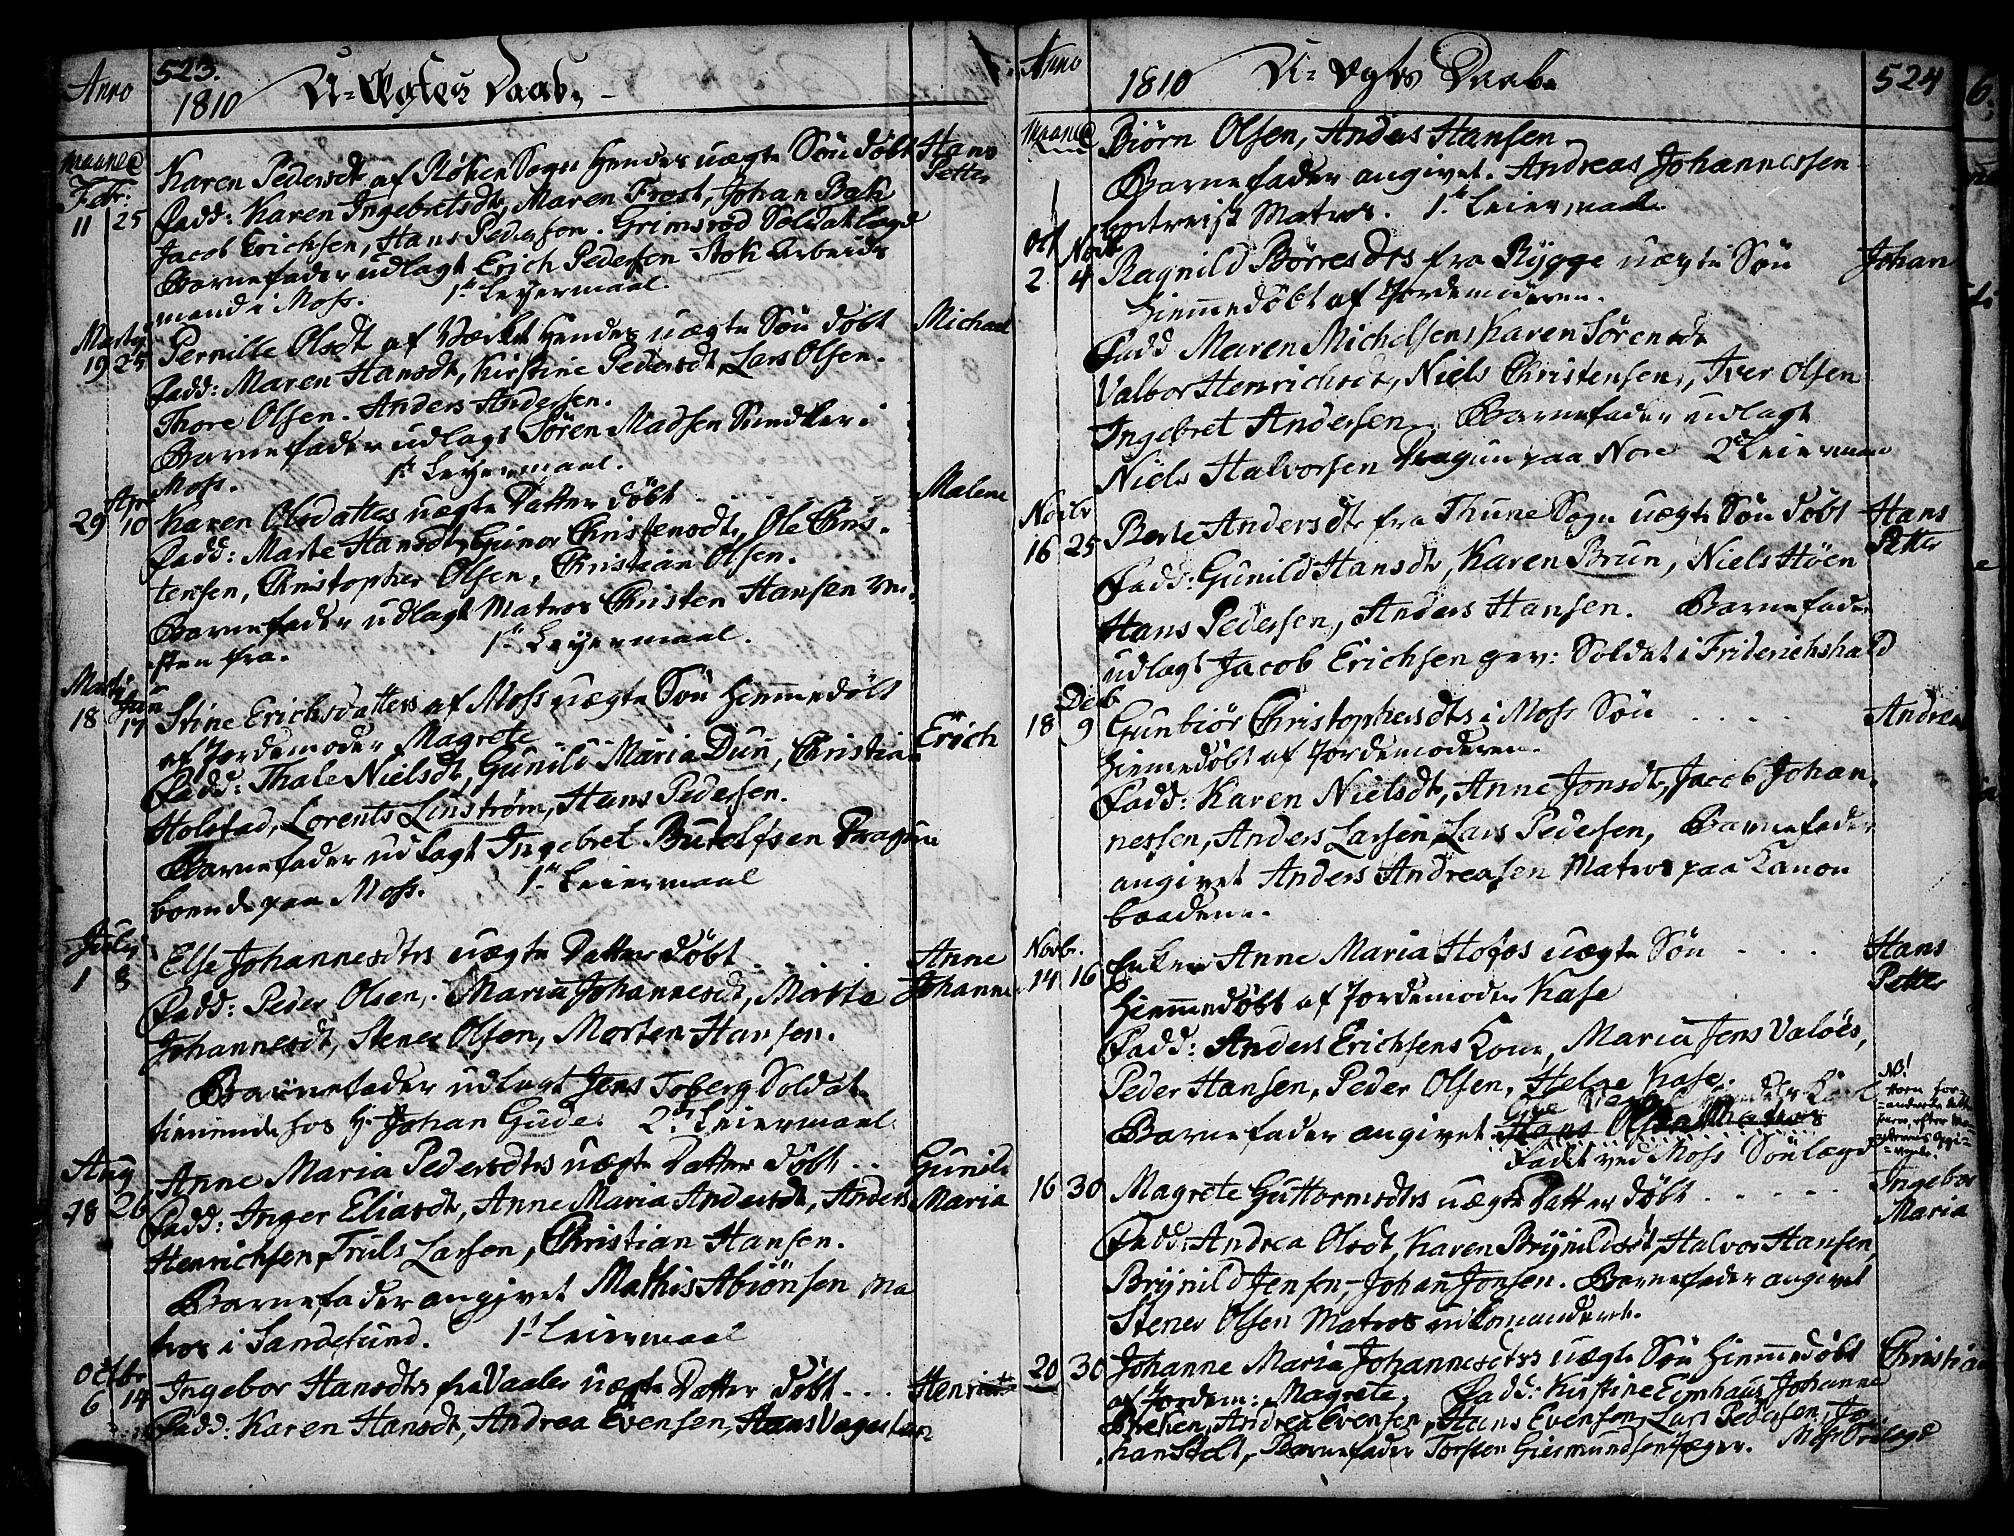 523.
Anno 1810 U-Ægtes Daab.
Maaned
Febr:
11 25 Karen Pedersdtr af Røken Sogn Hendes uægte Søn døbt Hans
Fadd: Karen Ingebretsdtr, Maren Frost, Johan Bak Petter
Jacob Erichsen, Hans Pedersen. Grimsrød Soldatlægd
Barnefader udlagt Erich Pedersen Arbeids
mand i Moss. 1te Leyermaal.
Martij
19 25 Pernille Olsdt af Værket Hendes uægte Søn døbt Michael
Fadd: Maren Hansdt, Kirstine Pedersdt, Lars Olsen.
Thore Olsen. Anders Andersen.
Barnefader udlagt Søren Madsen Snedker i
Moss. 1te Leyermaal.
Apr
29 10 Karen Olsdatters uægte Datter døbt Malene
Fadd: Marte Hansdt, Gunor Christensdt, Ole Chris-
tensen, Christopher Olsen, Christian Olsen.
Barnefader udlagt Matros Christen Hansen
1te Leyermaal.
Martij Jun
18 17 Stine Erichsdatters af Moss uægte Søn Hiemmedøbt
af Jordemoder Magrete Erich
Fadd: Thale Nielsdt, Gunild Maria Dun, Christian
Holstad, Lorents Linstrøm, Hans Pedersen.
Barnefader udlagt Ingebret Butolfsen Dragun
boende paa Moss. 1te Leiermaal
July
1 8 Else Johannesdtrs uægte Datter døbt Anne
Fadd: Peder Olsen, Maria Johannesdt, Marte Johanne
Johannesdt, Stener Olsen, Morten Hansen.
Barnefader udlagt Jens Toberg Soldat
tienende hos H. Johan Gude. 2det Leiermaal.
Aug
18 26 Anne Maria Pedersdtrs uægte Datter døbt Gunild
Fadd: Inger Eliasdt, Anne Maria Andersdt, Anders Maria
Henrichsen, Truls Larsen, Christian Hansen.
Barnefader angivet Mathis Abiönsen Ma
tros i Sandesund. 1te Leiermaal
Octbr
6 14 Ingebor Hansdtrs fra Vaaler uægte Datter døbt
Fadd: Karen Hansdt, Andrea Evensen, Hans
Anno 1810 U-Ægtes Daab 524
Maaned Biørn Olsen, Anders Hansen
Barnefader angivet. Andreas Johannessen
bortreist Matros. 1te Leiermaal.
Oct Novb
2 4 Ragnild Børresdtrs fra Rygge uægte Søn Johan
Hiemmedøbt af Jordemoderen.
Fadd Maren Michelsen, Karen Sørensdt
Valbor Henrichsdt, Niels Christensen, Iver Olsen
Ingebret Andersen Barnefader udlagt
Niels Halvorsen Dragun paa Nore 2det Leiermaal
Novbr
16 25 Berte Andersdtr fra Thune Sogn uægte Søn døbt Hans
Petter
Fadd: Gunild Hansdt, Karen Brun, Niels Høen
Hans Pedersen, Anders Hansen. Barnefader
udlagt Jacob Erichsen gev: Soldat i Friderichshald
Deb
18 9 Gunbiør Christophersdtrs i Moss Søn Andreas
Hiemmedøbt af Jordemoderen.
Fadd: Karen Nielsdt, Anne Jonsdt, Jacob Johan-
nessen, Anders Larsen, Lars Pedersen, Barnefader
angivet Anders Andreasen Matros paa Kanon
baadene.
Novb.
14 16 Enken Anne Maria Hofos uægte Søn Hans
Hiemmedøbt af Jordemoder Kase Petter
Fadd: Anders Erichsens Kone, Maria Jens Valøes,
Peder Hansen, Peder Olsen, Helge Kase.
Barnefader angivet Hans Olsen Matros
Født ved Moss Sønlægd
NB!
16 30 Magrete Guttormsdtrs uægte Datter døbt Ingebor
Maria
Fadd: Andrea Olsdt, Karen Brynildsdt, Halvor Hansen,
Brynild Jensen, Johan Jonsen. Barnefader angivet
Stener Olsen Matros udkomanderet.
20 30 Johanne Maria Johannesdtrs uægte Søn Hiemmedøbt Christian
af Jordem: Magrete. Fadd: Kirstine Eimhaus, Johanne
Andrea Evensen, Hans Evensen, Lars Pedersen, Jo-
han Barnefader Torsten Giermundsen Jæger.